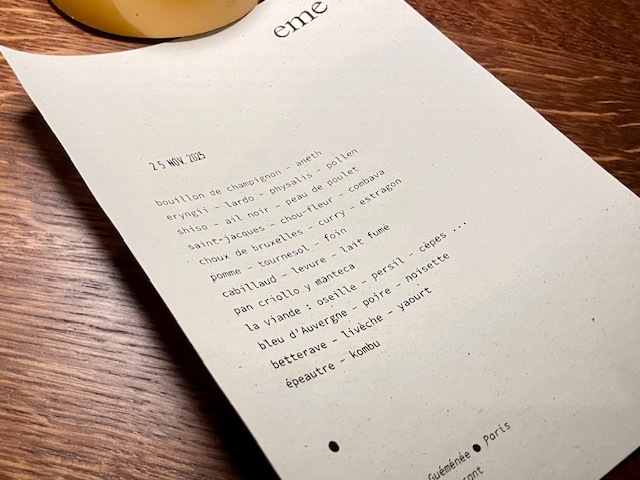 eme
25 NOV. 2025
bouillon de champignon - aneth
eryngii - lardo - physalis - pollen
shiso - ail noir - peau de poulet
saint-jacques - chou-fleur - combava
choux de bruxelles - curry - estragon
pomme - tournesol - foin
cabillaud - levure - lait fumé
pan criollo y manteca
la viande : oseille - persil - cèpes ...
bleu d'Auvergne - poire - noisette
betterave - livèche - yaourt
épeautre - kombu
Guéménée ● Paris